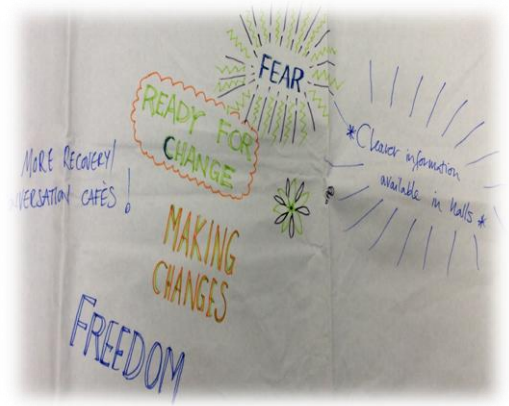 FEAR
READY FOR
CHANGE
*Clearer information
available in halls*
MORE RECOVERY/
VERSATION CAFÈS!
MAKING
CHANGES
FREEDOM